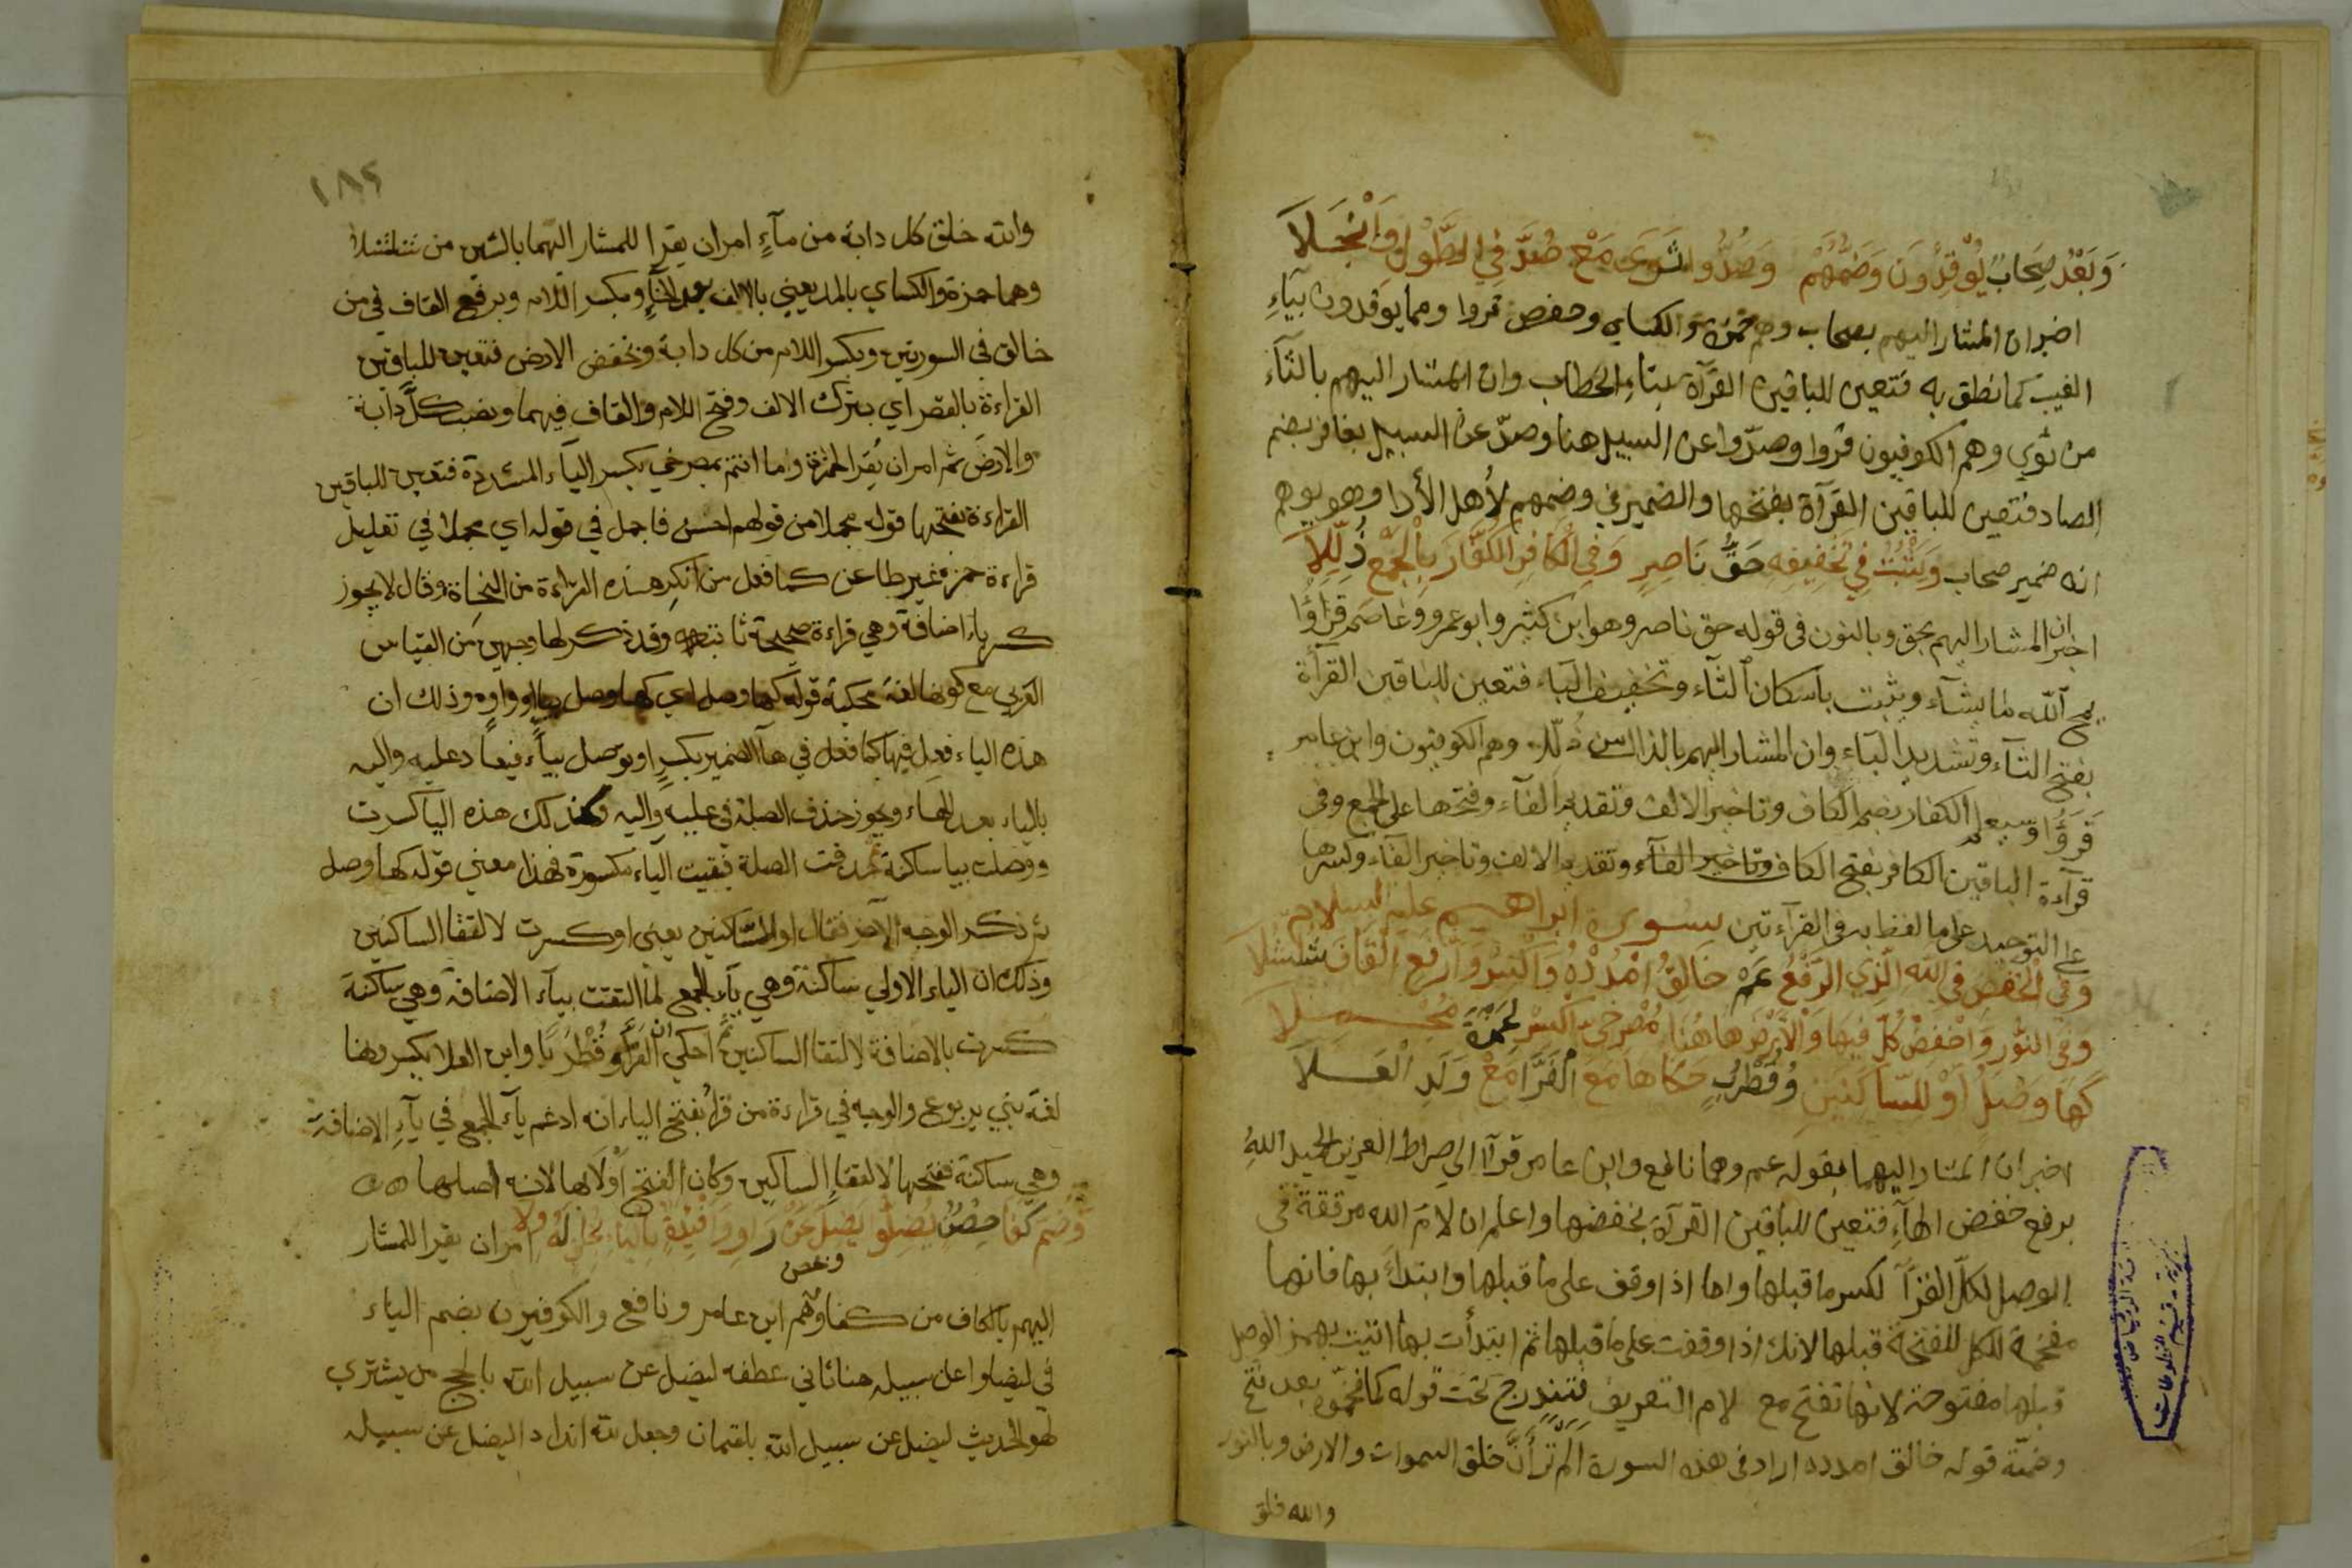 وَبَعْدُ صِحَابٌ يُوْقِدُونَ وَضَمُّهُمْ وَصُدُّوا ثَوَى مَعْ صُدَّ فِي الطَّوْلِ وَانْجَلَا
اخبر ان المشار اليهم بصحاب وهم حمزة والكساي وحفص قروا ومما يوقدون بيآءِ
الغيب كما نطق به فتعين للباقين القرآة بتاءِ الخطاب وان المشار اليهم بالثآء
من ثوي وهم الكوفيون قروا وصدّوا عن السبيل هنا وصدّ عن السبيل بغافر بضم
الصاد فتعين للباقين القرآة بفتحها والضمير في وضمهم لأهل الأدا وهو يوهم
انه ضمير صحاب وَيُثْبِتُ فِي تَخْفِيفِهِ حَقُّ نَاصِرٍ وَفِي الْكَافِرِ الْكُفَّارُ بِالْجَمْعِ ذُلِّلَا
اخبر ان المشار اليهم بحق وبالنون في قوله حق ناصر وهو ابن كثير وابو عمرو وعاصم قرأوا
يمح الله ما يشآء ويثبت باسكان الثآء وتخفيف البآء فتعين للباقين القرآة
بفتح الثآء وتشديد البآء وان المشار اليهم بالذال من ذللا وهم الكوفيون وابن عامر
قروا وسيعلم الكفار بضم الكاف وتاخير الالف وتقديم الفآء وفتحها على الجمع وفي
قرآءة الباقين الكافر بفتح الكاف وتاخير الفآء وتقديم الالف وتاخير الفآء وكسرها
على التوحيد على ما لفظ به في القرآءتين سورة ابراهيم عليه السلام
وَفِي الْخَفْضِ فِي اللهِ الَّذِي الرَّفْعُ عَمَّ خَالِقُ امْدُدْهُ وَاكْسِرْ وَارْفَعِ الْقَافَ شُلْشُلَا
وَفِي النُّورِ وَاخْفِضْ كُلَّ فِيهَا وَالْاَرْضَ هَاهُنَا مُصْرِخِيَّ اكْسِرْ لِحَمْزَةَ مُجْمِلَا
كَهَا وَصْلٍ أَوْ لِلسَّاكِنَيْنِ وَقُطْرُبٌ حَكَاهَا مَعَ الْفَرَّا مَعْ وَلَدِ الْعَلَا
اخبر ان المشار اليهما بقوله عم وهما نافع وابن عامر قرآ الي صراط العزيز الحميد اللهُ
برفع خفض الهآءِ فتعين للباقين القرآة بخفضها واعلم ان لامَ الله مرققة في
الوصل لكلّ القرّآ لكسر ما قبلها واما اذا وقف على ما قبلها وابتداء بها فانها
مفخمة للكل للفتحة قبلها لانك اذا وقفت على ما قبلها ثم ابتدأت بها اتيت بهمز الوصل
قبلها مفتوحة لانها تفتح مع لام التعريف فتندرج تحت قوله كما فخموه بعد فتح
وضمّة قوله خالق امدده اراد في هذه السورة الم تر أنَّ خلق السموات والارض وبالنور
والله خلق
١٨٢
والله خلق كل دابة من مآءٍ امر ان يقرا للمشار اليهما بالشين من شلشلا
وهما حمزة والكساي بالمد يعني بالالف بعد الخآءِ وبكسر اللام وبرفع القاف في من
خالق في السورتين وبكسر اللام من كل دابة وبخفض الارض فتعين للباقين
القراءة بالقصر اي بترك الالف وفتح اللام والقاف فيهما ونصب كلَّ دابة
والارضَ ثم امر ان يُقرا لحمزة وما انتم بمصرخي بكسر اليآء المشددة فتعين للباقين
القراءة بفتحها قوله مجملا من قولهم احسن فاجمل في قوله اي مجملا في تعليل
قراءة حمزة غير طاعن كما فعل من انكر هذه القراءة من النحاة وقال لا يجوز
كسر ياء اضافة وهي قراءة صحيحة ثابتة وقد ذكر لها وجهين من القياس
العربي مع كونها لغة محكية قوله كها وصل اي كهاء وصل بياء او واو وذلك ان
هذه الياء فعل فيها كما فعل في هآ الضمير بكسرٍ او يوصل بياءً فيها دعليه واليه
بالياء بعد الهاء ويجوز حذف الصلة في عليه واليه وكذلك هذه اليا كسرت
ووصلت بيا ساكنة ثم حذفت الصلة فبقيت الياء مكسورة فهذا معني قوله كها وصل
ثم ذكر الوجه الآخر فقال او للساكنين يعني او كسرت لالتقا الساكنين
وذلك ان الياء الاولي ساكنة وهي يآء الجمع لما التقت بيآء الاضافة وهي ساكنة
كسرت بالاضافة لالتقا الساكنين ثم احكي ان الفرّاء وقُطْرُبًا وابن العلا بكسر وهنا
لغة بني يربوع والوجه في قراءة من قرأ بفتح الياء انه ادغم يآء الجمع في يآءِ الاضافة
وهي ساكنة ففتحها لالتقاءِ الساكنين وكان الفتح اولا بها لانه اصلها
وَضُمَّ كِفَا حِصْنٍ يَضِلُّوا يَضِلَّ عَنْ وَافْئِيدَةً بِالْيَا بِخُلْفٍ لَهُ وَلَا امر ان يقرا للمشار
اليهم بالكاف من كفا وحصن وهم ابن عامر ونافع والكوفيون بضم الياء
في ليضلوا عن سبيله هنا ثاني عطفه ليضل عن سبيل الله بالحج من يشتري
لهو الحديث ليضل عن سبيل الله بلقمان وجعل لله اندادا ليضل عن سبيله